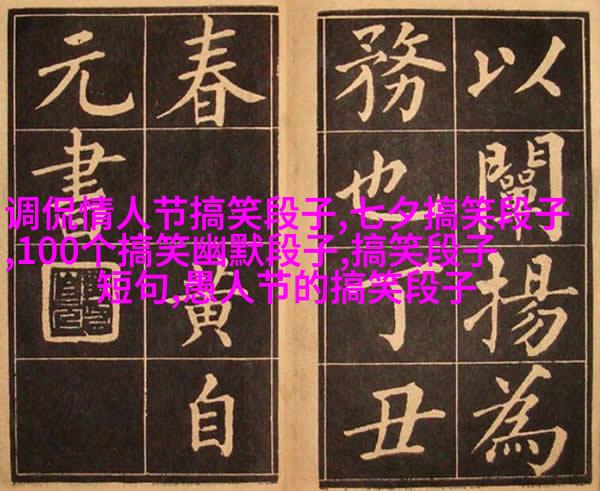 以闡揚為
務也丁丑
春黃自
元書
调侃情人节搞笑段子,七夕搞笑段子
,100个搞笑幽默段子,搞笑段子
短句,愚人节的搞笑段子